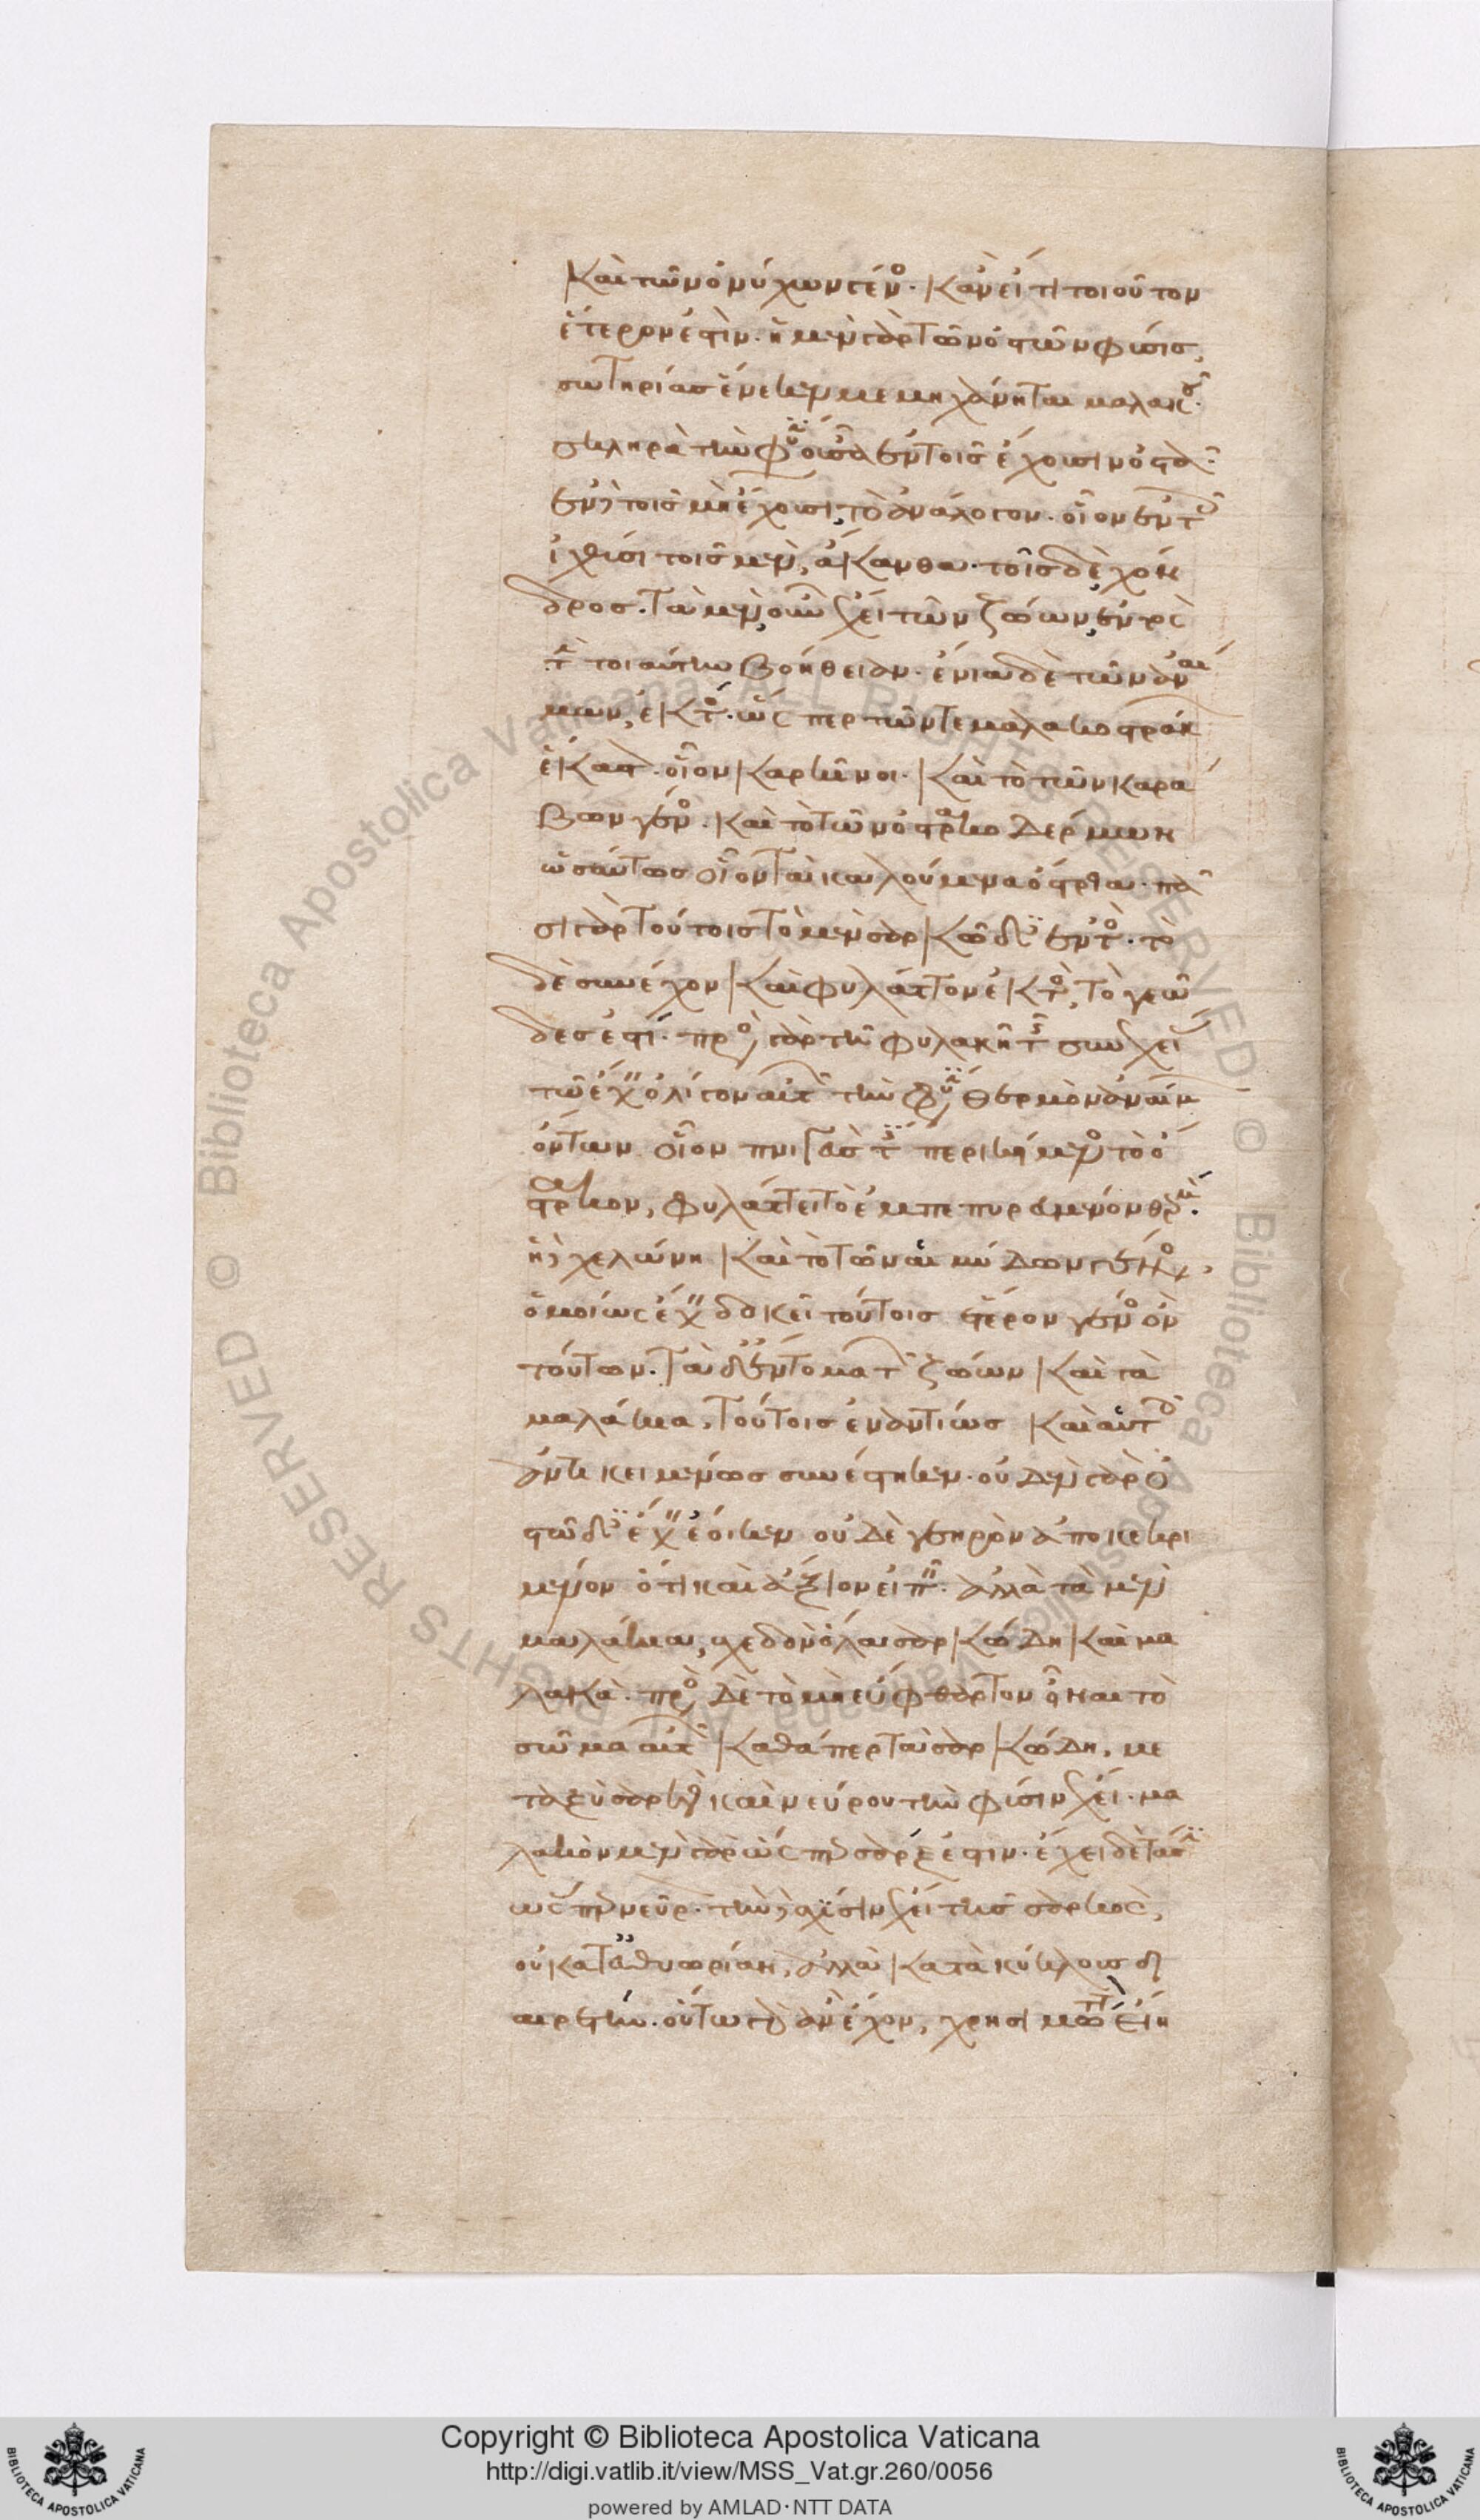 καὶ τῶν ὀνύχων γένος. κἂν εἴ τι τοιοῦτον
ἕτερόν ἐστιν. ἡ μὲν γὰρ τῶν ὀστῶν φύσις,
σωτηρίας ἕνεκεν μεμηχάνηται μαλακοῦ.
σκληρὰ τὴν φύσιν οὖσα ἐν τοῖς ἔχουσιν ὀστᾶ.
ἐν δὲ τοῖς μὴ ἔχουσι, τὸ ἀνάλογον. οἷον ἐν τοῖς
ἰχθύσι τοῖς μὲν, ἄκανθα. τοῖς δὲ χόν
δρος. τὰ μὲν οὖν ἔχει τῶν ζώων, ἐντὸς
τὴν τοιαύτην βοήθειαν. ἔνια δὲ τῶν ἀναί
μων, ἐκτός. ὥσπερ τῶν τε μαλακοστράκων
ἕκαστον. οἷον καρκῖνοι. καὶ τὸ τῶν καρά
βων γένος. καὶ τὸ τῶν ὀστρακοδέρμων
ὡσαύτως οἷον τὰ καλούμενα ὄστρεα. πᾶ
σι γὰρ τούτοις τὸ μὲν σαρκῶδες ἐντός. τὸ
δὲ συνέχον καὶ φυλάττον ἐκτός, τὸ γεῶ
δές ἐστι. πρὸς γὰρ τῇ φυλακῇ τῆς συνεχείας
τῷ ἔχειν ὀλίγον αὐτῶν τὴν φύσιν θερμὸν ἀναίμων
ὄντων οἷον πνιγεύς τις περικείμενον τὸ ὄ
στρακον, φυλάττει τὸ ἐμπεπυρευμένον θερμόν.
ἡ δὲ χελώνη καὶ τὸ τῶν αἱμύδων γένος,
ὁμοίως ἔχειν δοκεῖ τούτοις ἕτερον γένος ὂν
τούτων. τὰ δ' ἔντομα τῶν ζώων καὶ τὰ
μαλάκια, τούτοις ἐναντίως καὶ αὑτοῖς
ἀντικειμένως συνέστηκεν. οὐδὲν γὰρ ὀ
στῶδες ἔχειν ἔοικεν οὐδὲ γεηρὸν ἀποκεκρι
μένον ὅτι καὶ ἄξιον εἰπεῖν. ἀλλὰ τὰ μὲν
μαλάκια, σχεδὸν ὅλα σαρκώδη καὶ μα
λακά. πρὸς δὲ τὸ μὴ εὔφθαρτον εἶναι τὸ
σῶμα αὐτῶν καθάπερ τὰ σαρκώδη, με
ταξὺ σαρκὸς καὶ νεύρου τὴν φύσιν ἔχει. μα
λακὸν μὲν γὰρ ὥσπερ σάρξ ἐστιν. ἔχει δὲ τάσιν
ὥσπερ νεῦρον. τὴν δὲ σχίσιν ἔχει τῆς σαρκὸς,
οὐ κατ' εὐθυωρίαν, ἀλλὰ κατὰ κύκλους δι
αιρετήν. οὕτως γὰρ ἂν ἔχον, χρησιμώτατον εἴη